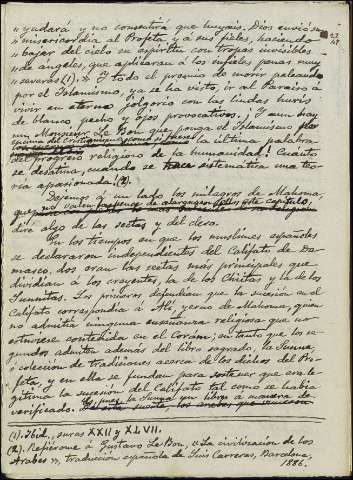 "ayudará y no consentirá que huyais. Dios envió su
"misericordia al Profeta y á sus fieles, haciendo
"bajar del cielo su espíritu con tropas invisibles
"de ángeles, que aplicaran á los infieles penas muy
"severas (1)." Y todo el premio de morir peleando
por el Islamismo, ya se ha visto, ir al Paraíso a
vivir en eterno jolgorio con las lindas huris
de blanco pecho y ojos provocativos. ¡Y aun hay
un Monsieur Le Bon que ponga el Islamismo
la última palabra
del progreso religioso de la humanidad! Cuánto
se desatina, cuando se hace sistemática una teo-
ría apasionada! (2).
Dejemos á un lado los milagros de Mahoma,
diré algo de las sectas y del clero.
En los tiempos en que los muslimes españoles
se declararon independientes del Califato de Da-
masco, dos eran las sectas más principales que
dividían á los creyentes, la de los Chiitas y la de los
Sunnitas. Los primeros defendían que la sucesión en el
Califato correspondía á Alí, yerno de Mahoma, quien
no admitía ninguna enseñanza religiosa que no
estuviese contenida en el Corám; en tanto que los se-
gundos admiten además del libro sagrado, la Sunna,
ó colección de tradiciones acerca de los dichos del Pro-
feta, y en ella se fundan para sostener que era le-
gítima la sucesión del Califato tal como se había
verificado.
(1). Ibid., suras XXII y XLVII.
(2). Refiérome á Gustavo Le Bon, "La civilización de los
Arabes", traducción española de Luis Carreras, Barcelona,
1886.